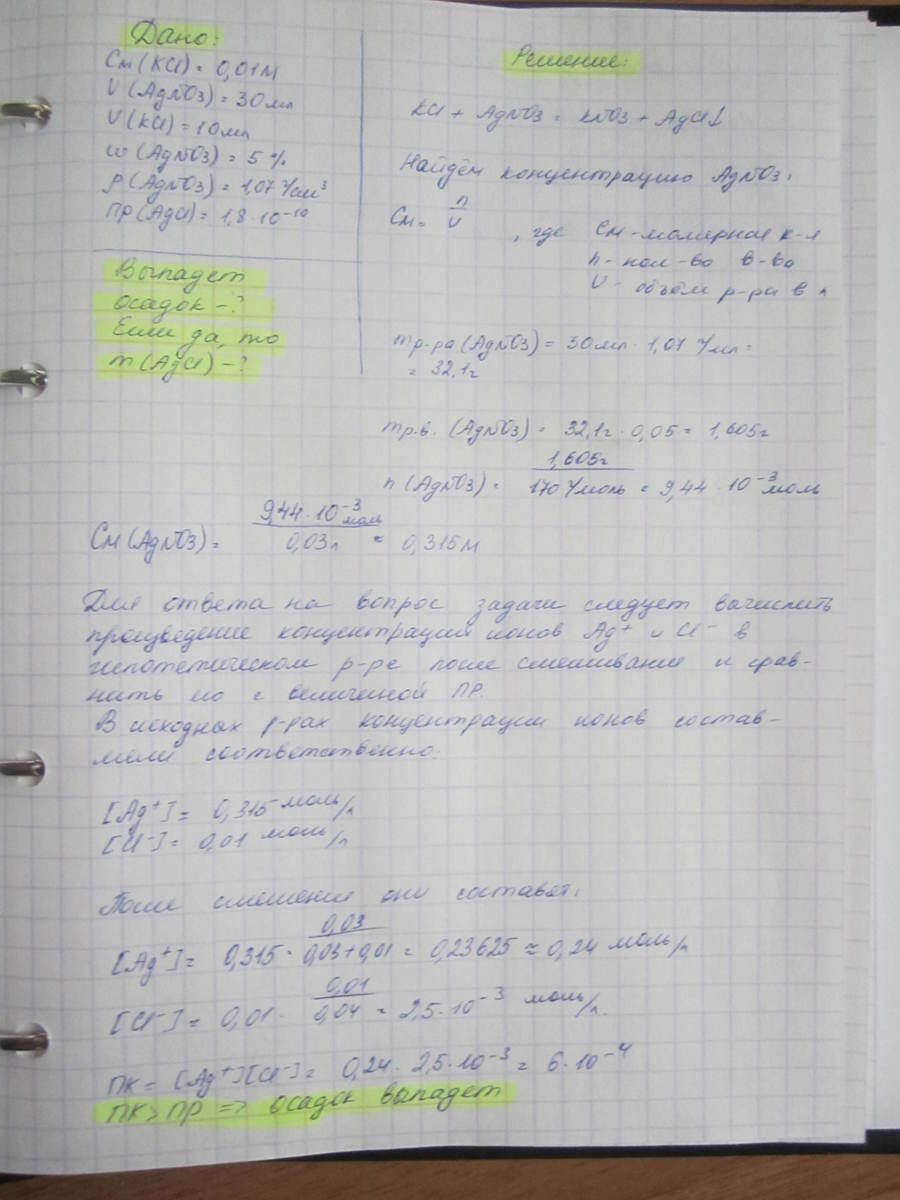 Дано:
См(KCl) = 0,01М
V(AgNO3) = 30мл
V(KCl) = 10мл
ω(AgNO3) = 5%
ρ(AgNO3) = 1,07 г/см³
Пр(AgCl) = 1,8·10⁻¹⁰
Выпадет
осадок - ?
Если да, то
m(AgCl) - ?
Решение:
KCl + AgNO3 = KNO3 + AgCl↓
Найдём концентрацию AgNO3:
См = n/V, где См - молярная к-я
n - кол-во в-ва
V - объём р-ра в л
mр-ра(AgNO3) = 30мл · 1,07 г/мл =
= 32,1г
mр.в.(AgNO3) = 32,1г · 0,05 = 1,605г
n(AgNO3) = 1,605г / 170 г/моль = 9,44·10⁻³ моль
См(AgNO3) = 9,44·10⁻³ моль / 0,03л = 0,315М
Для ответа на вопрос задачи следует вычислить
произведение концентраций ионов Ag⁺ и Cl⁻ в
гипотетическом р-ре после смешивания и срав-
нить его с величиной ПР.
В исходных р-рах концентрации ионов состав-
ляли соответственно:
[Ag⁺] = 0,315 моль/л
[Cl⁻] = 0,01 моль/л
После смешения они составят:
[Ag⁺] = 0,315 · 0,03 / 0,03+0,01 = 0,23625 ≈ 0,24 моль/л
[Cl⁻] = 0,01 · 0,01 / 0,04 = 2,5·10⁻³ моль/л.
ПК = [Ag⁺][Cl⁻] = 0,24 · 2,5·10⁻³ = 6·10⁻⁴
ПК > ПР => осадок выпадет